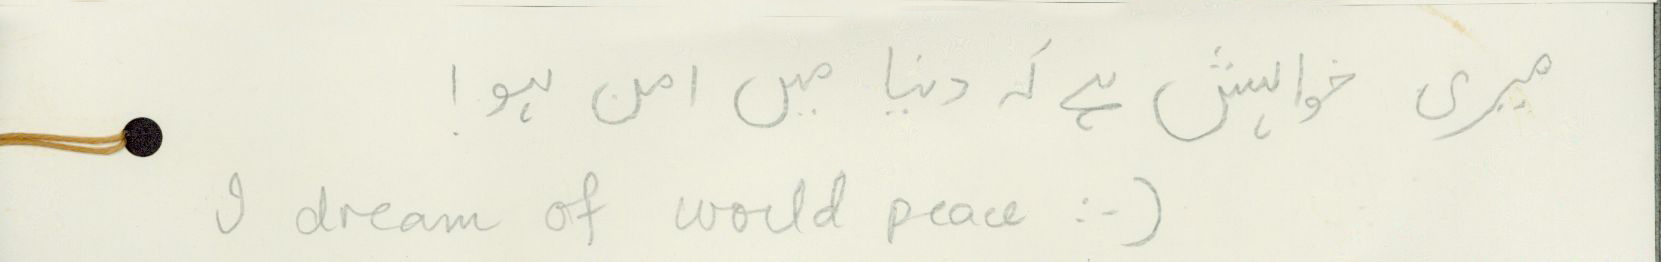 میری خواہش ہے کہ دنیا میں امن ہو !
I dream of world peace :-)